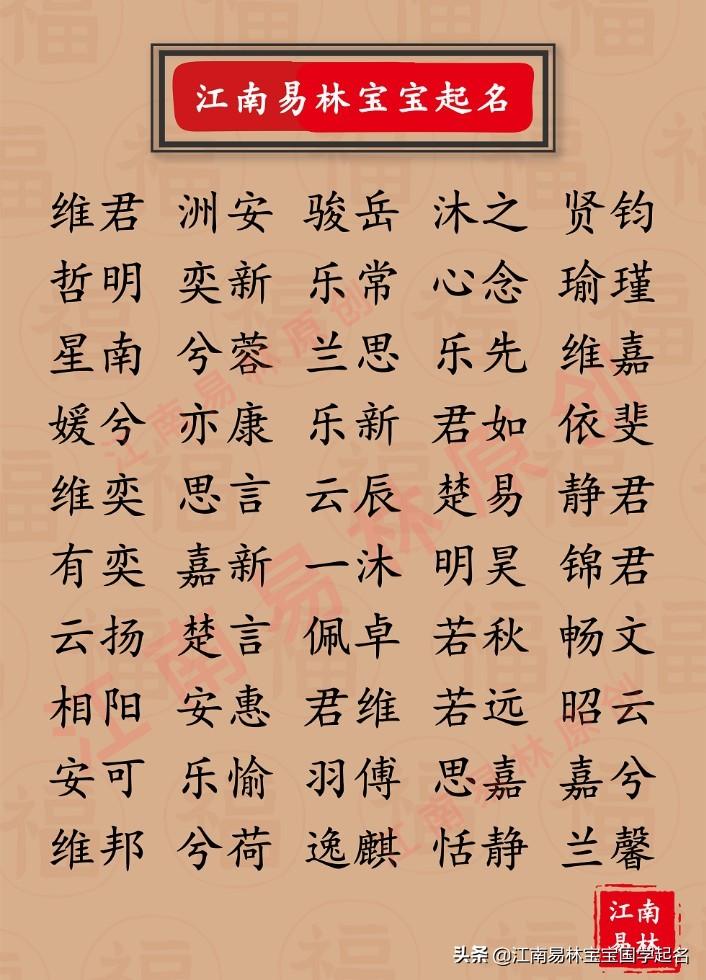 江南易林宝宝起名
维君 洲安 骏岳 沐之 贤钧
哲明 奕新 乐常 心念 瑜瑾
星南 兮蓉 兰思 乐先 维嘉
媛兮 亦康 乐新 君如 依斐
维奕 思言 云辰 楚易 静君
有奕 嘉新 一沐 明昊 锦君
云扬 楚言 佩卓 若秋 畅文
相阳 安惠 君维 若远 昭云
安可 乐愉 羽傅 思嘉 嘉兮
维邦 兮荷 逸麒 恬静 兰馨
江南易林原创
江南易林原创
江南易林原创
江南
易林
头条 @江南易林宝宝国学起名